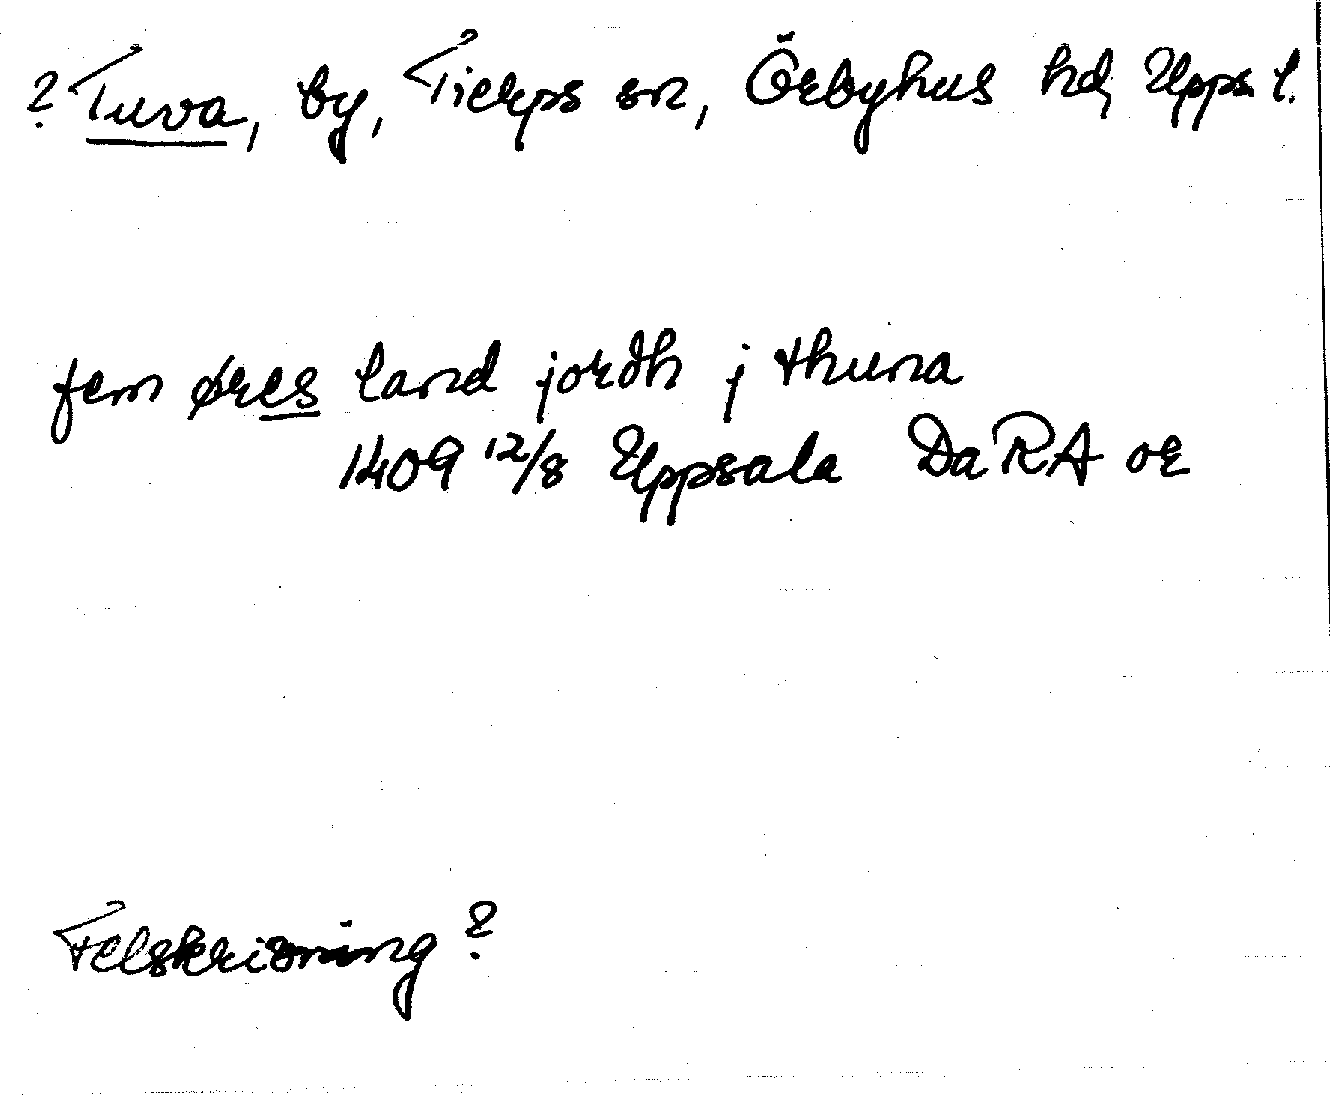 ? Tuva, by, Tierps sn, Örbyhus hd, Upps. l.
fem øres land jordh j thuna
1409 12/8 Uppsala DaRA or
Felskrivning?